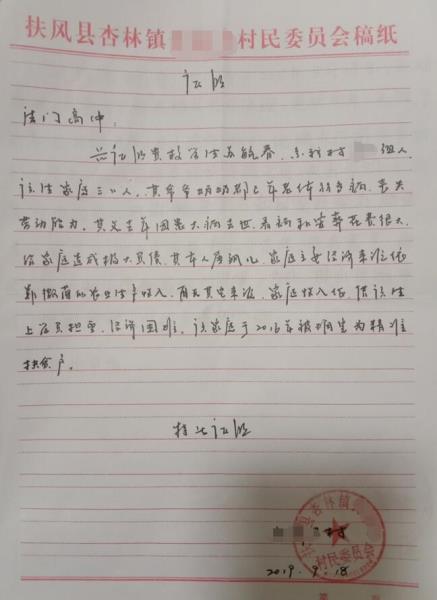 扶风县杏林镇 村民委员会稿纸
证明
法门高中:
兹证明贵校学生苏毓春,系我村 组人
该生家庭三口人,其爷爷奶奶都已年老体弱多病,丧失
劳动能力,其父去年因患大病去世,看病和安葬花费很大
给家庭造成极大负债,其本人 ,家庭主要经济来源依
靠微薄的农业生产收入,再无其它来源,家庭收入低,供该生
上学负担重,经济困难,该家庭于2016年被确定为精准
扶贫户。
特此证明
村
扶风县杏林镇
村民委员会
2019.9.18